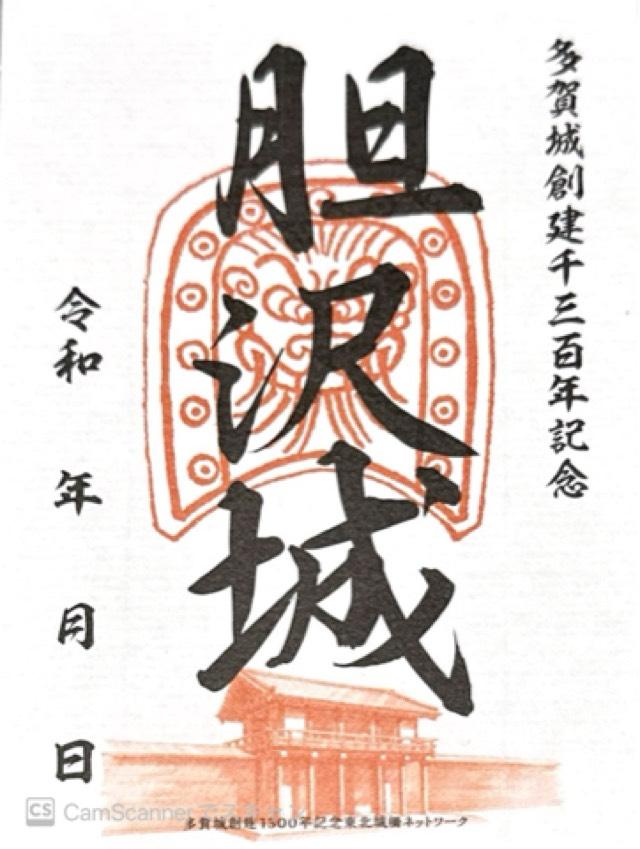 多賀城創建千三百年記念
胆沢城
令和 年 月 日
CS CamScanner
多賀城創建1300年記念東北城柵ネットワーク